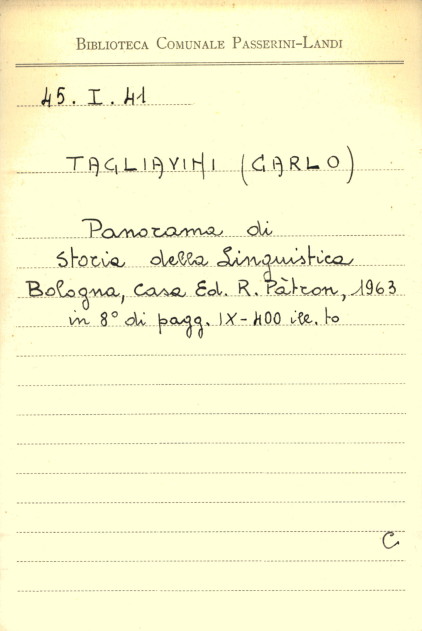 BIBLIOTECA COMUNALE PASSERINI-LANDI
45. I. 41
TAGLIAVINI (CARLO)
Panorama di
Storia della Linguistica
Bologna, Casa Ed. R. Pàtron, 1963
in 8° di pagg. IX-400 ill.to
C